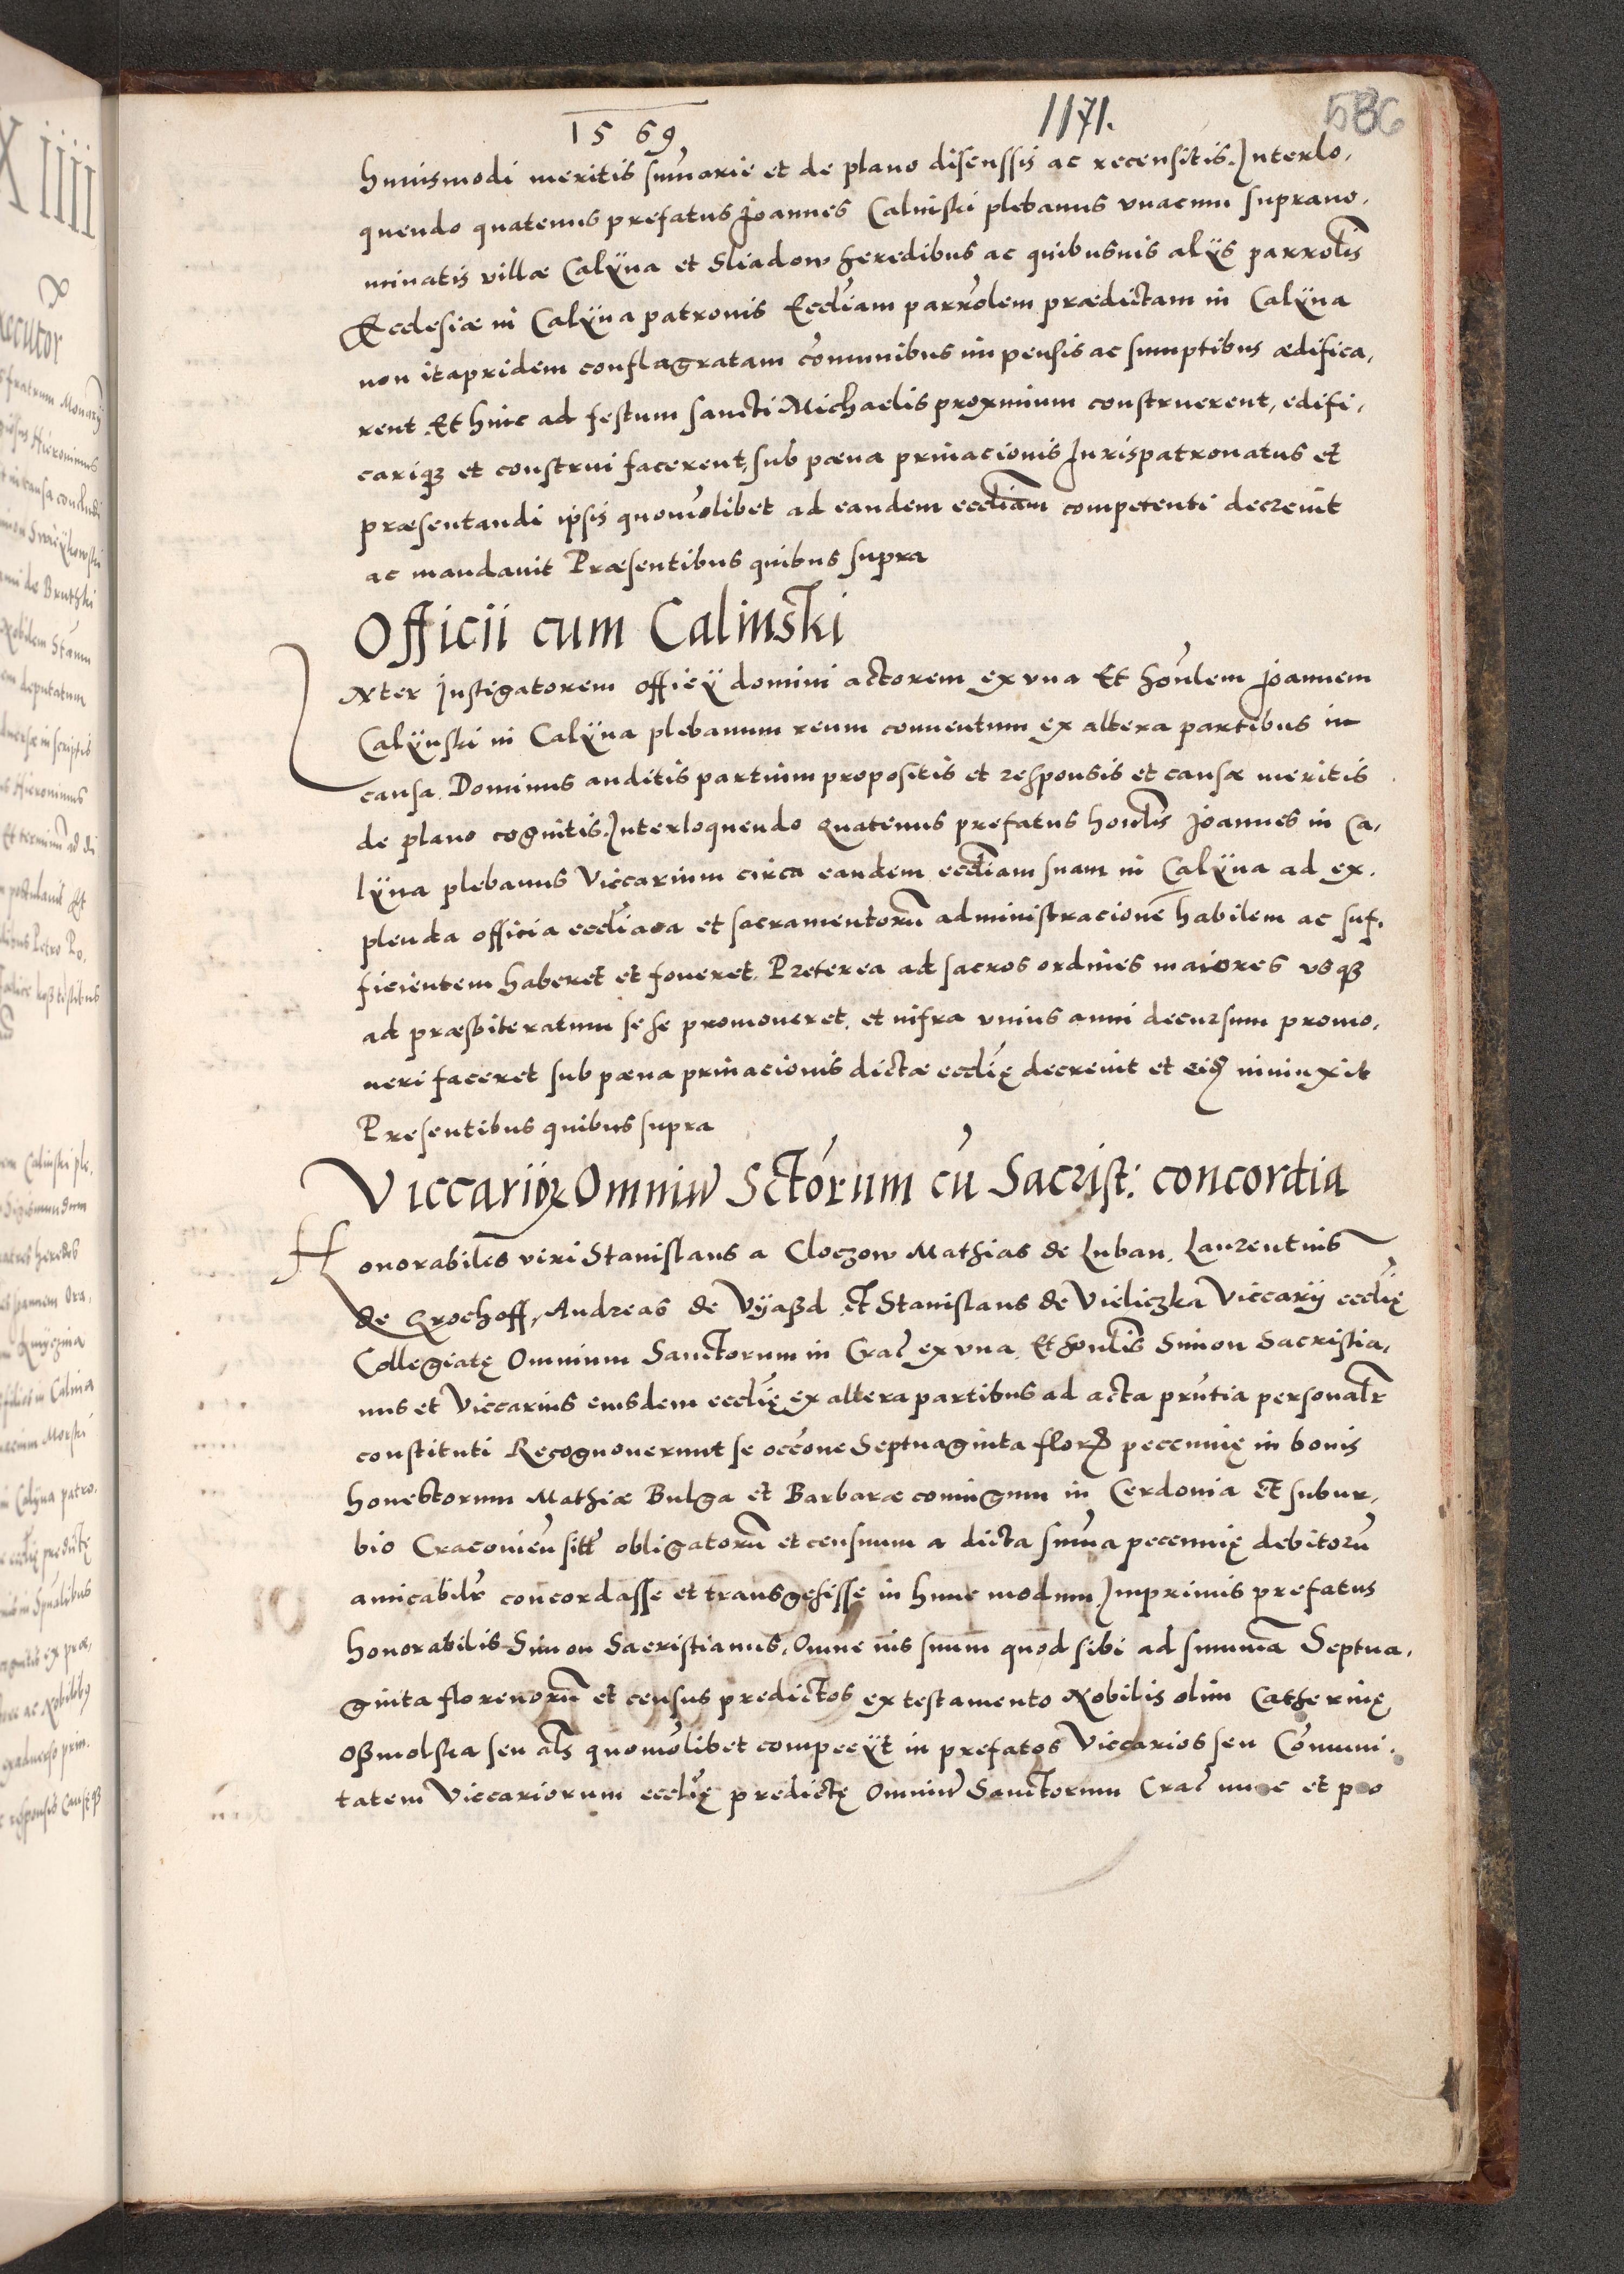 1569
1171.
586
huiusmodi meritis sum̄arie et de plano discussis ac recensitis. Interlo,
quendo quatenus prefatus Joannes Calinski plebanus vnacum suprano,
minatis villæ Calÿna et Sliadow heredibus ac quibusuis alÿs parrolis
Ecclesiæ in Calÿna patronis Eccliam parrolem prædictam in Calÿna
non itapridem conflagratam com̄unibus impensis ac sumptibus ædifica,
rent. Et hinc ad festum sancti Michaelis proximum construerent, edifi,
cariqꝫ et construi facerent, sub pœna priuacionis Jurispatronatus et
præsentandi ipsis quomolibet ad eandem eccliam competenti decreuit
ac mandauit Præsentibus quibus supra
Officii cum Calinski
Inter Instigatorem officÿ domini actorem ex vna Et honlem Joannem
Calÿnski in Calÿna plebanum reum conuentum ex altera partibus in
causa. Dominus auditis partium propositis et responsis et causæ meritis
de plano cognitis. Interloquendo quatenus prefatus honlis Joannes in Ca,
lÿna plebanus Viccarium circa eandem eccliam suam in Calÿna ad ex,
plenda officia eccliaca et sacramentorū administracionē habilem ac suf,
ficientem haberet et foueret. Preterea ad sacros ordines maiores vsqꝫ
ad præsbiteratum sese promoueret, et infra vnius anni decursum promo,
ueri faceret sub pœna priuacionis dictæ eccliȩ decreuit et eisdem iniunxit
Presentibus quibus supra
Viccariorꝝ Omniū Sctorum cū Sacrist: concordia
Honorabiles viri Stanislaus a Cloczow Mathias de Luban, Laurentius
de Grochoff, Andreas de Vyaßd et Stanislaus de Vieliczka Viccarij eccliȩ
Collegiatȩ Omnium Sanctorum in Crac ex vna. Et honlis Simon Sacristia,
nus et Viccarius eiusdem eccliȩ ex altera partibus ad acta prntia personalr
constituti Recognouerunt se occone Septuaginta florꝝ pecuniȩ in bonis
honestorum Mathiæ Bulga et Barbaræ coniugum in Cerdonia et subur,
bio Cracouien sitt obligatorū et censuum a dicta sum̄a pecuniȩ debitorū
amicabilr concordasse et transegisse in hunc modum. Imprimis prefatus
honorabilis Simon Sacristianus. Omne ius suum quod sibi ad sum̄am Septua,
ginta florenorū et census predictos ex testamento Nobilis olim Catherinȩ
Oßmolska seu als quomolibet competÿt in prefatos Viccarios seu Com̄uni,
tatem Viccariorum eccliȩ predictȩ Omniū Sanctorum Crac nunc et pro